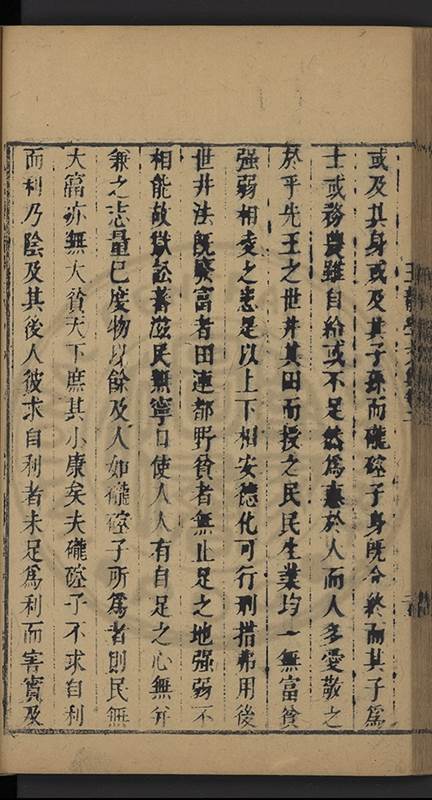 或及其身或及其子孫而礲硿子身既令終而其子爲
士或務農雖自給或不足然爲惠於人而人多愛敬之
於乎先王之世井其田而授之民民生業均一無富貧
強弱相凌之患是以上下相安德化可行刑措弗用後
世井法既隳富者田連都野貧者無止足之地強弱不
相能故獄訟蕃滋民無寧日使人人有自足之心無并
兼之志量已度物以餘及人如礲硿子所爲者則民無
大富亦無大貧天下庶其小康矣夫礲硿子不求自利
而利乃陰及其後人彼求自利者未足爲利而害實及